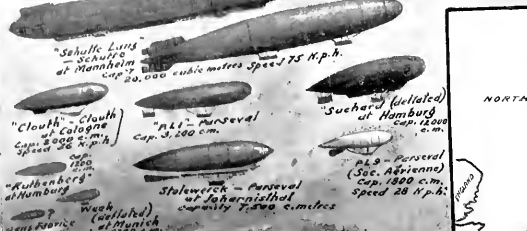 "Schutte Lanz"
– Schutte
at Mannheim
Cap-y 20,000 cubic metres Speed 75 K.p.h.
"Clouth" – Clouth
at Cologne
Cap. 8000 c.m.
Speed 36 K.p.h.
"PL1" – Parseval
Cap. 3,200 cm.
"Suchard (deflated)
at Hamburg
Cap. 12000
c.m.
Cap.
1200
c.m.
"Ruthenberg"
at Hamburg
Stolewerck – Parseval
at Johannisthal
capacity 7,500 c.metres
PL9 – Parseval
(Soc. Aérienne)
Cap. 1800 c.m.
Speed 28 K.p.h.
Week
(deflated)
at Munich
NORTH
ENGLAND